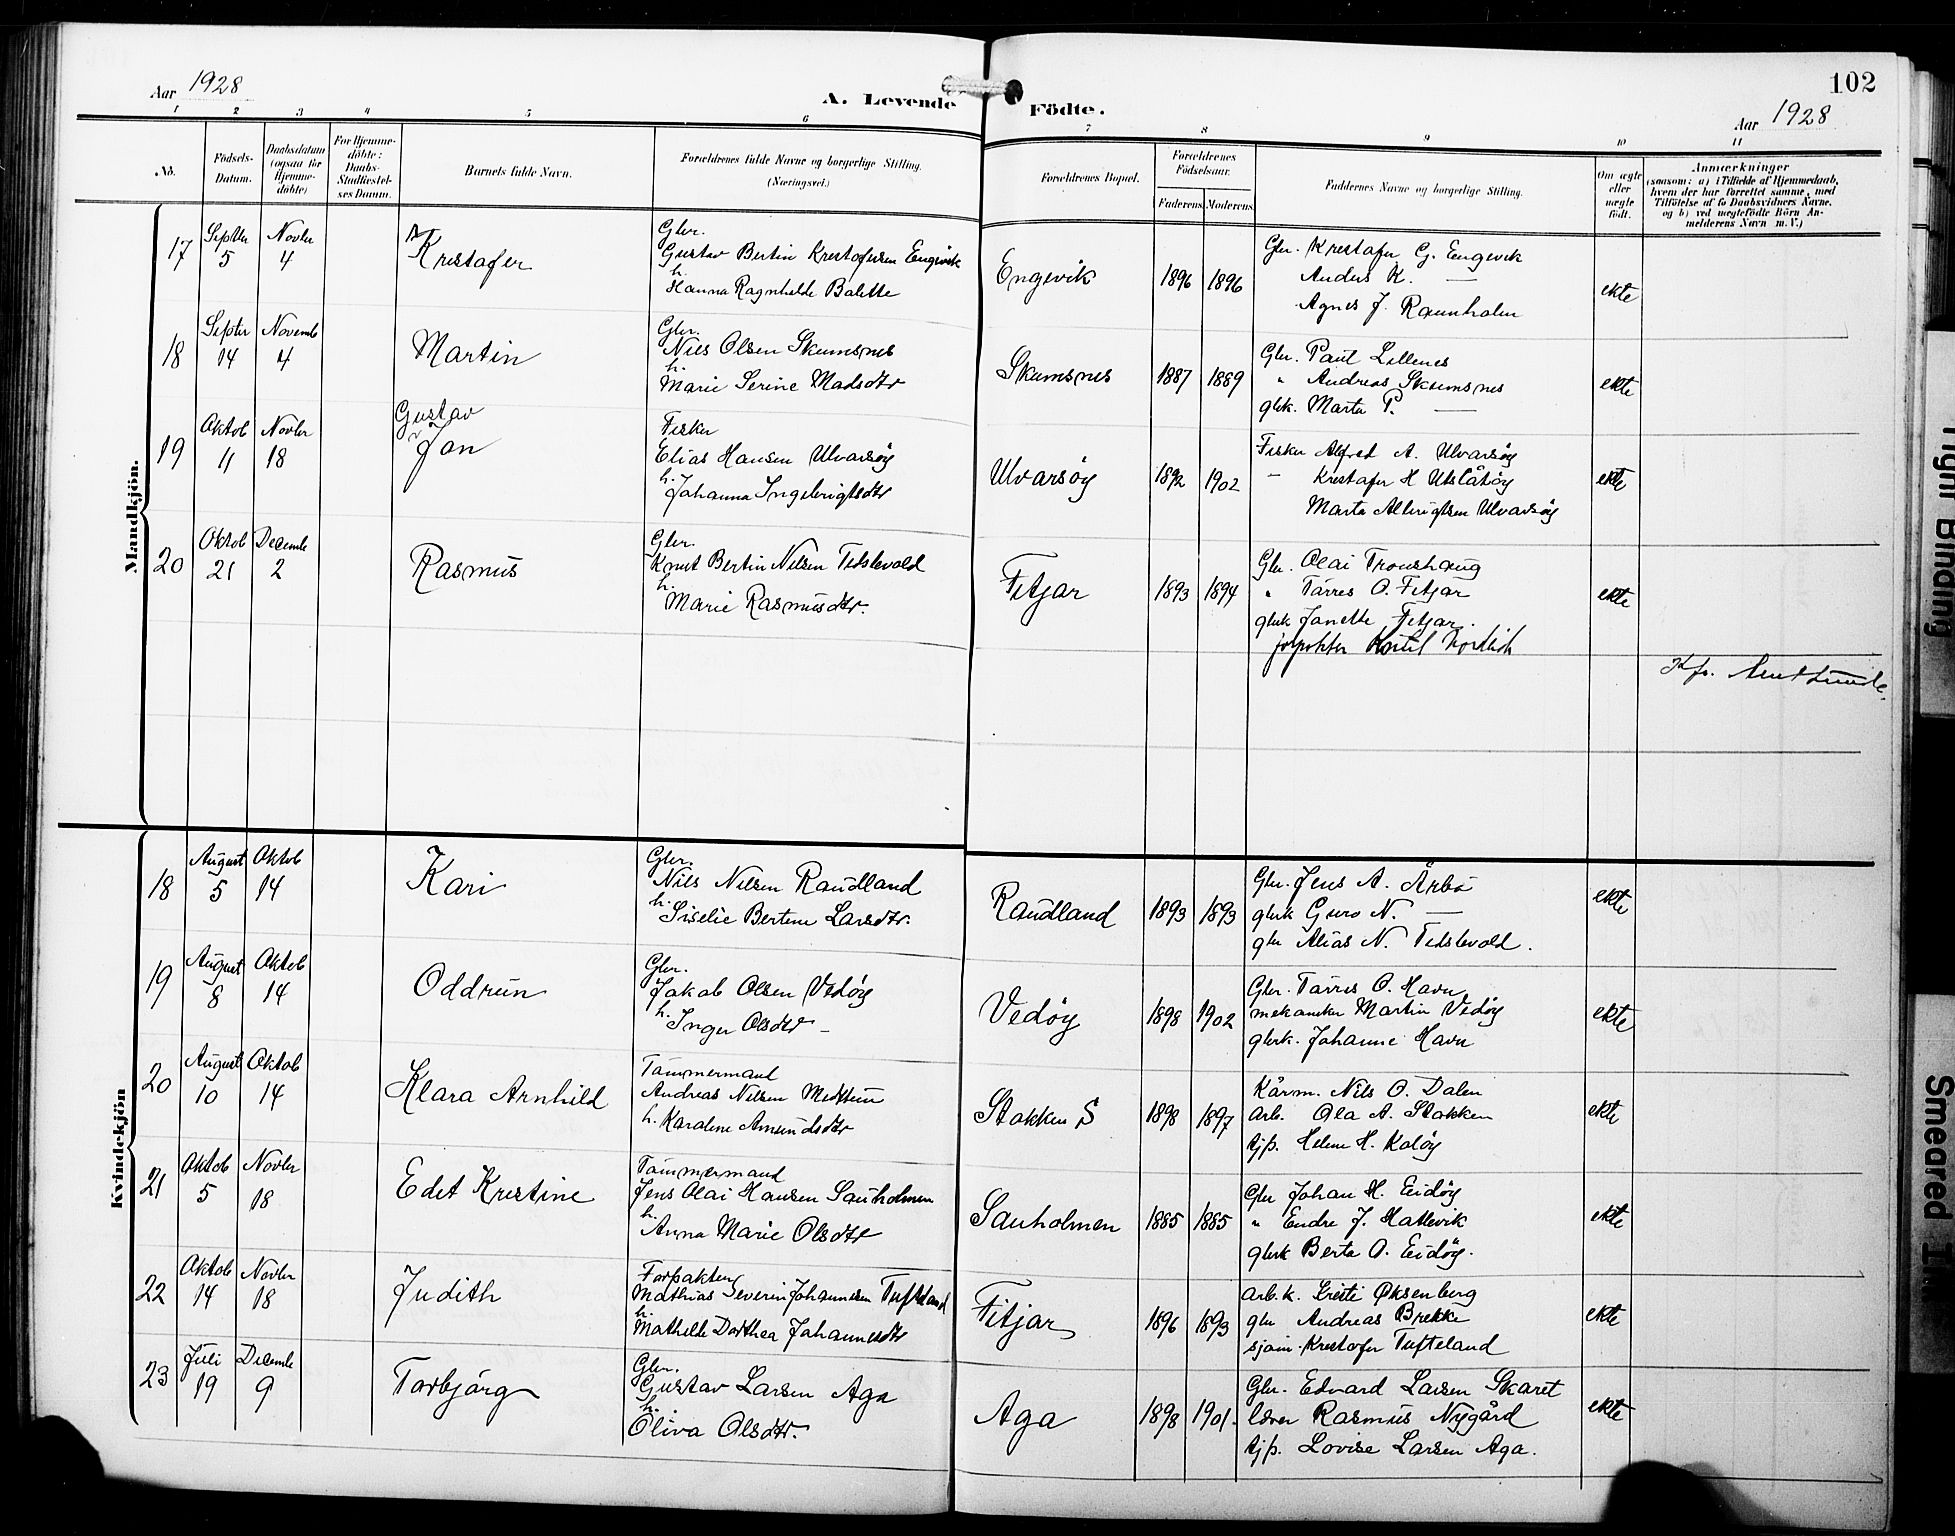 Aar 1928
A. Levende
Födte.
102
Aar 1928
1 2 3 4 5 6 7 8 9 10 11
No.
Födsels-
Datum.
Daabsdatum
(ogsaa for
Hjemme-
döbte)
For Hjemme-
döbte:
Daabs-
Stadfæstel-
ses Datum.
Barnets fulde Navn.
Forældrenes fulde Navne og borgerlige Stilling.
(Næringsvei.)
Forældrenes Bopæl.
Forældrenes
Födselsaar.
Faderens. Moderens.
Faddernes Navne og borgerlige Stilling.
Om ægte
eller
uægte
födt.
Anmærkninger
(saasom: a) i Tilfælde af Hjemmedaab,
hvem der har forrettet samme, med
Tilföielse af to Daabsvidners Navne,
og b) ved uægtefödte Börn An-
melderens Navn m. V.)
Mandkjön.
17
Septbr
5
Novbr
4
Krestafer
Gbr.
Gustav Bertin Krestofersen Engevik
h.
Hanna Ragnhilde Balette
Engevik
1896
1896
Gbr. Krestafer G. Engevik
Anders K. —
Agnes J. Raunholm
ekte
18
Septbr
14
Novemb
4
Martin
Gbr.
Nils Olsen Skumsnes
h.
Marie Serine Madsdtr
Skumsnes
1887
1889
Gbr. Paul Lillenes
" Andreas Skumsnes
gbrk. Marta P. —
ekte
19
Oktob
11
Novbr
18
Gustav
Jan
Fisker
Elias Hansen Ulvarsöy
h.
Johanna Ingebrigtsdtr
Ulvarsöy
1892
1902
Fisker Alfred A. Ulvarsöy
— Krestafer H Utslåtöy
Marta Albrigtsen Ulvarsöy
ekte
20
Oktob
21
Decembr
2
Rasmus
Gbr.
Knut Bertin Nilsen Tislevold
h.
Marie Rasmusdtr.
Fitjar
1893
1894
Gbr. Olai Tronshaug
" Tarres O. Fitjar
gbrk Janette Fitjar.
ekte
Kvindekjön
18
August
5
Oktob
14
Kari
Gbr.
Nils Nilsen Raudland
h.
Siselie Bertine Larsdtr.
Raudland
1893
1893
Gbr. Jens A. Årbö
gbrk Guro N. —
gbr Alias N. Tislevold.
ekte
19
August
8
Oktob
14
Oddrun
Gbr.
Jakob Olsen Vedöy
h.
Inger Olsdtr —
Vedöy
1898
1902
Gbr. Tarres O. Havn
mekaniker Martin Vedöy
gbrk. Johanne Havn
ekte
20
August
10
Oktob
14
Klara Arnhild
Tömmermand
Andreas Nilsen Mehtun
h. Karoline Amundsdtr
Stokken S
1898
1897
Kårm. Nils O. Dalen
arb. Ola A. Stokken
tjp. Helene H. Kalöy
ekte
21
Oktob
5
Novbr
18
Edet Krestine
Tömmermand
Jens Olai Hansen Sauholmen
h.
Anna Marie Olsdtr
Sauholmen
1885
1885
Gbr Johan H. Eidöy
" Endre J. Hatlevik
gbrk Berta O. Eidöy.
ekte
22
Oktob
14
Novbr
18
Judith
Forpakter
Mathias Severin Johannesen Tufteland
h.
Mathilde Dorthea Johannesdtr
Fitjar
1896
1893
arb.k. Kristi Öksenberg
gbr Andreas Brekke
sjöm. Krestafer Tufteland
ekte
23
Juli
19
Decembr
9
Torbjörg
Gbr.
Gustav Larsen Aga
h.
Oliva Olsdtr.
Aga
1898
1901.
Gbr. Edvard Larsen Skaret
lærer Rasmus Nygård
tjp. Lovise Larsen Aga.
ekte
Tight Binding
Smeared Ink